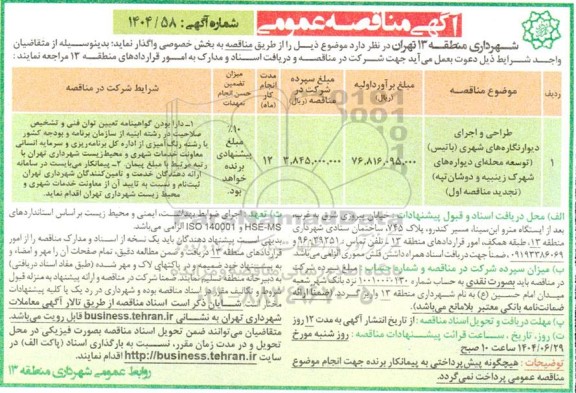 آگهی مناقصه عمومی
شماره آگهی: ۱۴۰۴/۵۸
شهرداری منطقه ۱۳ تهران در نظر دارد موضوع ذیل را از طریق مناقصه به بخش خصوصی واگذار نماید: بدینوسیله از متقاضیان
واجد شرایط ذیل دعوت بعمل می‌آید جهت شرکت در مناقصه و دریافت اسناد و مدارک به امور قراردادهای منطقه ۱۳ مراجعه نمایند:
ردیف
موضوع مناقصه
مبلغ برآورد اولیه (ریال)
مبلغ سپرده شرکت در مناقصه (ریال)
مدت انجام کار (ماه)
میزان تضمین حسن انجام تعهدات
شرایط شرکت در مناقصه
۱
طراحی و اجرای
دیوارنگاره‌های شهری (یاتیس)
(توسعه محله‌ای دیواره‌های
شهرک زینبیه و دوشان‌تپه)
(تجدید مناقصه اول)
۷۶,۸۱۶,۰۹۵,۰۰۰
۳,۸۴۵,۰۰۰,۰۰۰
۱۲
۱۰٪
مبلغ
پیشنهادی
برنده
خواهد
بود.
۱- دارا بودن گواهینامه تعیین توان فنی و تشخیص
صلاحیت در رشته ابنیه از سازمان برنامه و بودجه کشور
یا رشته رنگ آمیزی از اداره کل برنامه‌ریزی و سرمایه انسانی
معاونت خدمات شهری و محیط‌زیست شهرداری تهران با
رتبه مرتبط با مبلغ پیمان. ۲- پیمانکار می‌بایست در سامانه
ارائه دهندگان خدمت و تامین‌کنندگان شهرداری تهران
ثبت‌نام و نسبت به تایید آن از معاونت خدمات شهری و
محیط زیست شهرداری تهران اقدام نماید.
الف) محل دریافت اسناد و قبول پیشنهادات: خیابان پیروزی، نرسیده به
بعد از ایستگاه مترو ابن‌سینا، مسیر کندرو، پلاک ۷۴۵، ساختمان ستادی شهرداری
منطقه ۱۳، طبقه همکف، امور قراردادهای منطقه ۱۳
ب) میزان سپرده شرکت در مناقصه و شماره حساب: مبلغ سپرده شرکت
در مناقصه باید بصورت نقدی به حساب شماره ۱۰۰۱۰۰۰۰۱۳۰ نزد بانک شهر شعبه
میدان امام حسین (ع) به نام شهرداری منطقه ۱۳
ضمانتنامه بانکی معتبر بلامانع می‌باشد).
پ) مهلت دریافت و تحویل اسناد مناقصه: از تاریخ انتشار آگهی به مدت ۱۲ روز
ت) روز، تاریخ، ساعت قرائت پیشنهادات مناقصه: روز شنبه مورخ
۱۴۰۴/۰۶/۲۹ ساعت ۱۰ صبح
ث) تعهد اجرای ضوابط بهداشت، ایمنی و محیط زیست بر اساس استانداردهای
HSE-MS و ISO 140001 الزامی می‌باشد.
بدیهی است پیشنهاد دهندگان باید یک نسخه از اسناد و مدارک مناقصه را از امور
قراردادهای منطقه ۱۳ دریافت و ضمن مطالعه دقیق، تمام صفحات آن را مهر و امضاء و
شایان ذکر است اسناد مناقصه از طریق تالار آگهی معاملات
شهرداری تهران به نشانی business.tehran.ir قابل رویت می‌باشد.
متقاضیان می‌توانند ضمن تحویل اسناد مناقصه بصورت فیزیکی در محل
تحویل و در مدت زمان مقرر، نسبت به بارگذاری اسناد (پاکت الف) در
سایت http://business.tehran.ir اقدام نمایند.
توضیحات: هیچگونه پیش‌پرداختی به پیمانکار برنده جهت انجام موضوع
مناقصه عمومی پرداخت نمی‌گردد.
روابط عمومی شهرداری منطقه ۱۳